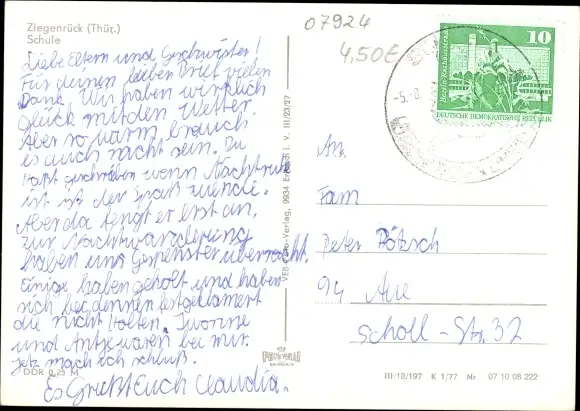 Ziegenrück (Thür.)
Schule
07924
4,50€
Liebe Eltern und Geschwister!
Für deinen lieben Brief vielen
Dank. Wir haben wirklich
Glück mit den Wetter.
Aber so warm brauch
es auch nicht sein. Du
hast geschrieben wenn Nachtruhe
ist ist der spaß zuende.
Aber da fengt er erst an.
Zur Nachtwanderung
haben uns Gespenster überrascht.
Einige haben geholt und haben
sich bei dennen festgeklamert
die nicht Holten. Ivonne
und Antje waren bei mir.
Jetz mach ich schluß.
Es Grüßt Euch Claudia.
DDR 0,25 M
VEB Foto-Verlag, 9934 i. V. III/23/27
10
Berlin-Rathausstraße
DEUTSCHE DEMOKRATISCHE REPUBLIK
-5.-8.
An.
Fam
Peter Pötzsch
94 Aue
Scholl-Str. 32
III/18/197 K 1/77 Nr 07 10 08 222